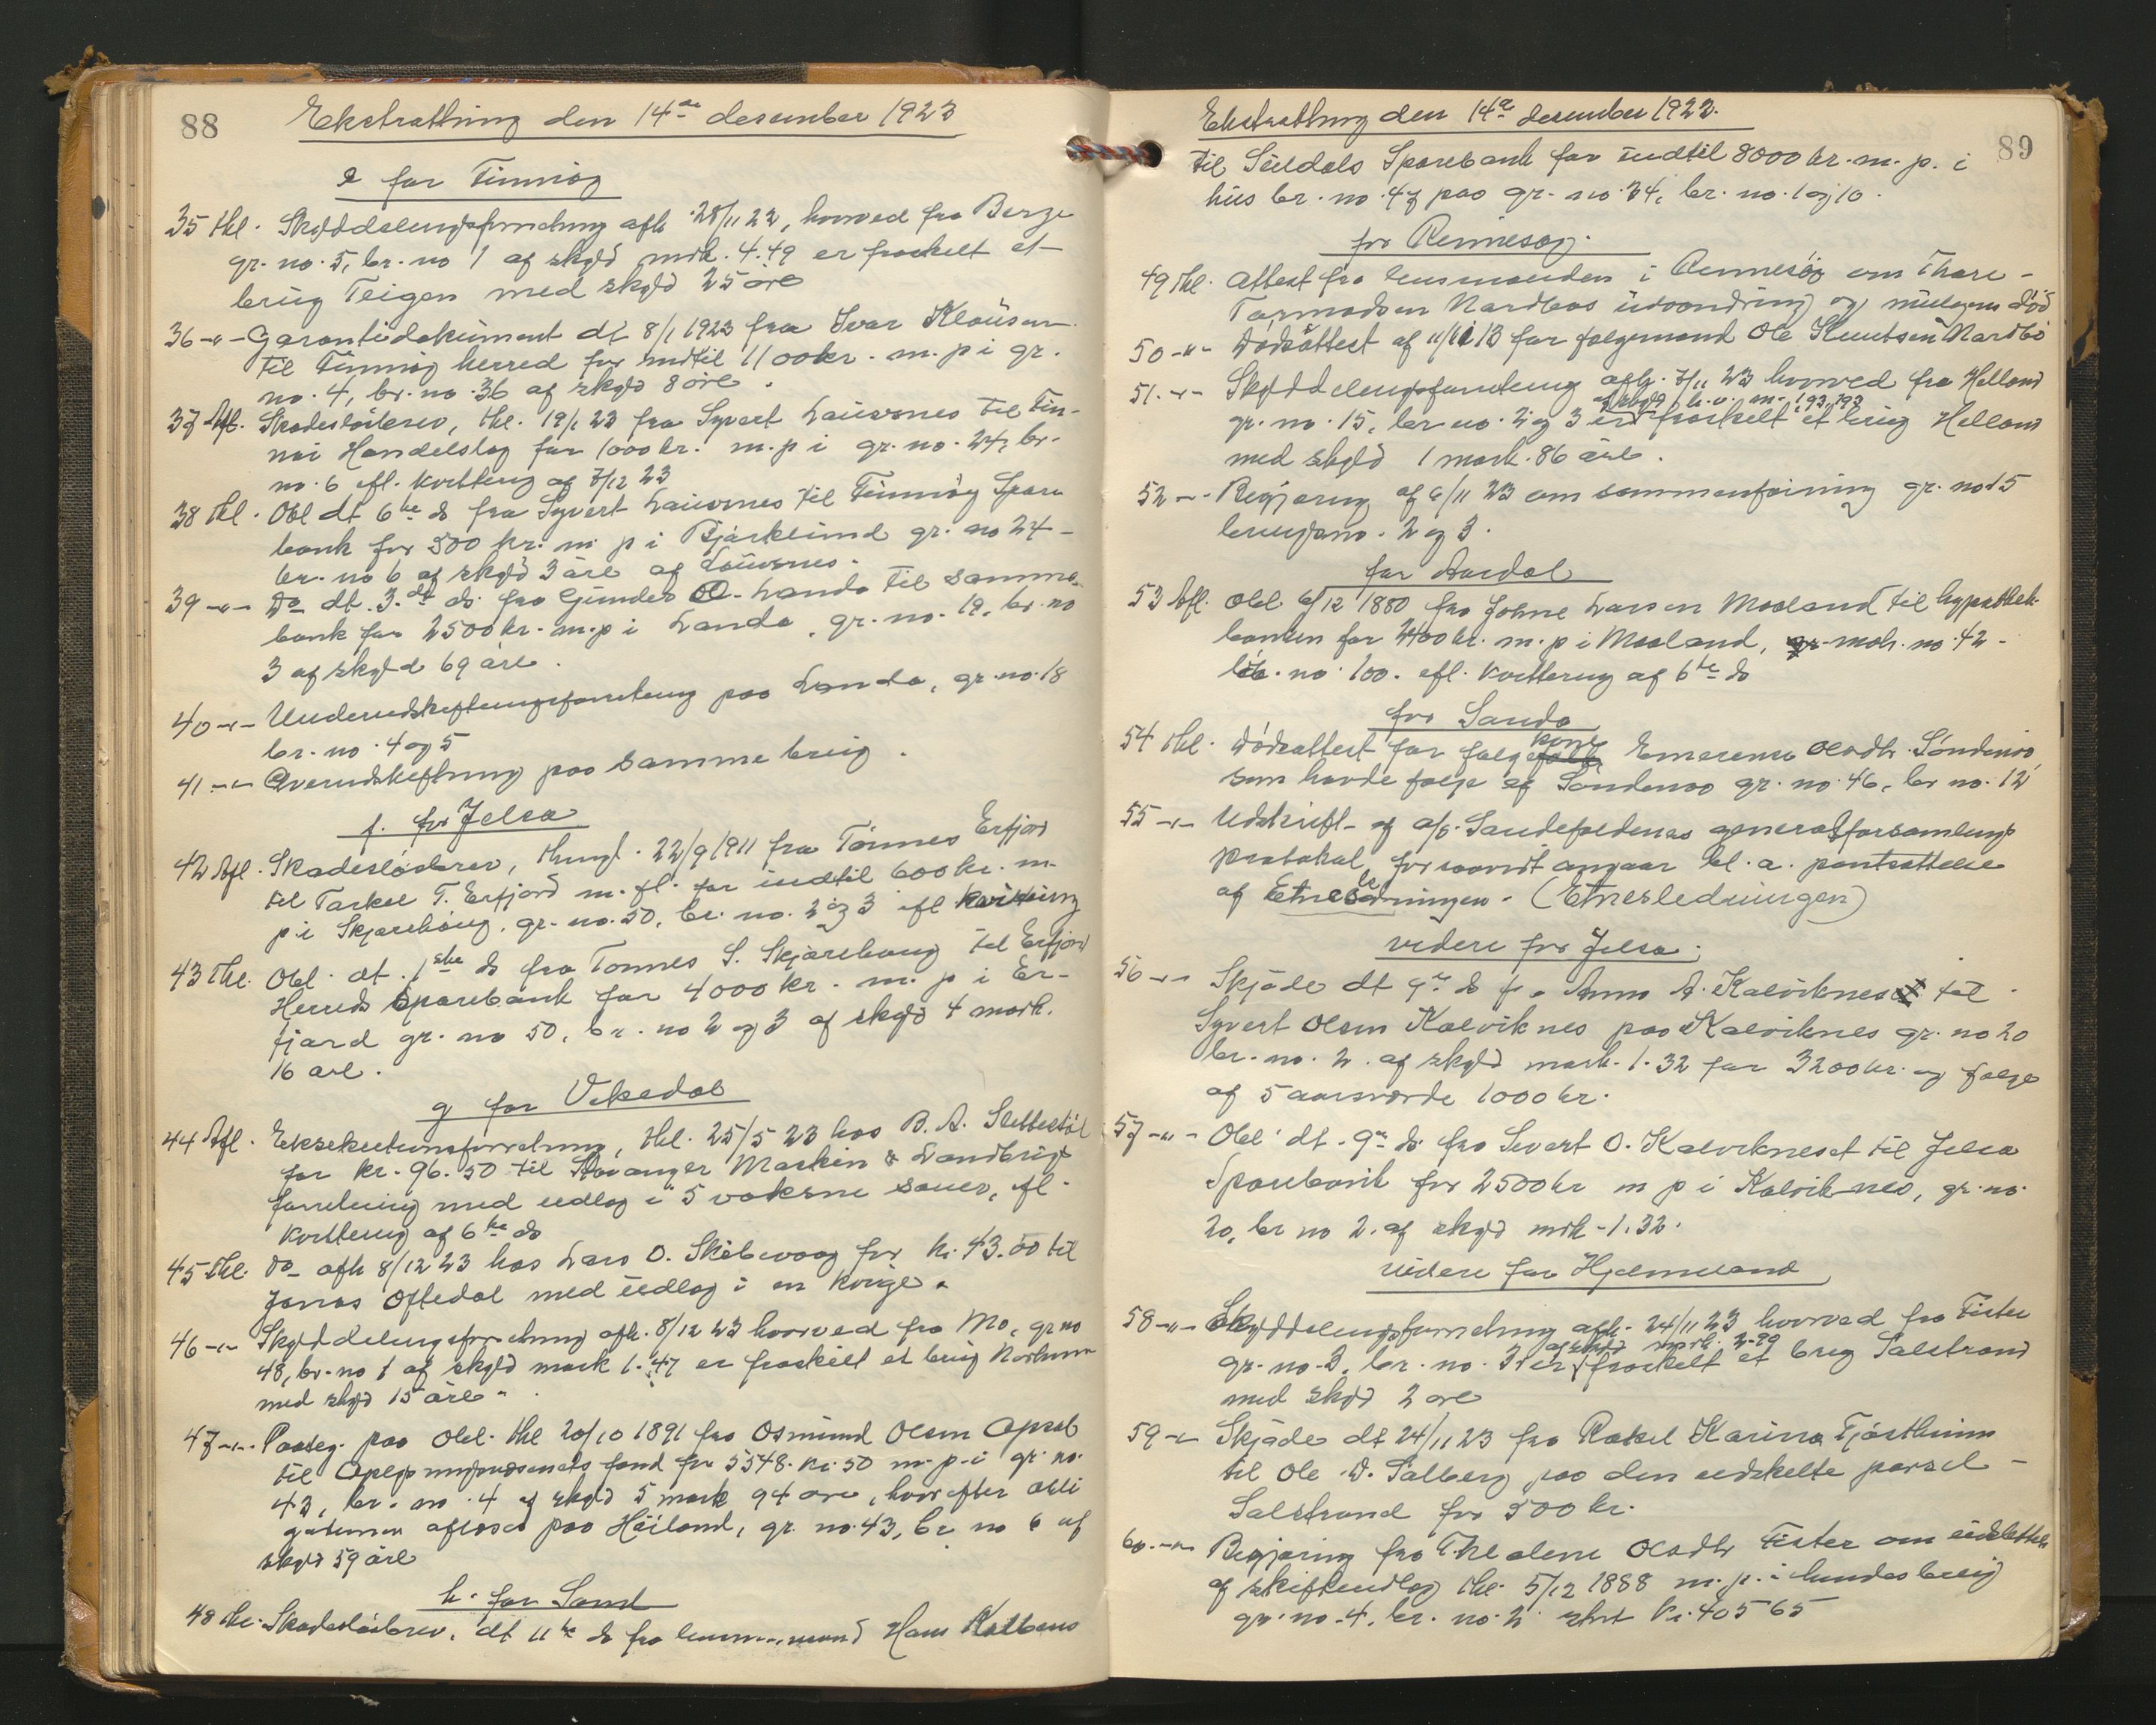 88
Ekstratthing den 14de desember 1923
e for Finnøy
35 thl. Skylddelingsforretning afh 28/11 23, hvorved fra Berge
gr. no. 5, br. no 1 af skyld mrk. 4.49 er fraskilt et
brug Teigen med skyld 25 øre
36 -"- Garantidokument dt 8/1 1923 fra Ivar Klausen
til Finnøy herred for indtil 1100 kr. m. p i gr.
no. 4, br. no. 36 af skyld 8 øre.
37 Afl. Skadesløsbrev, thl. 19/1 23 fra Syvert Lauvsnes til Fin-
nøi Handelslag for 1000 kr. m. p i gr. no. 24, br.
no. 6 efl. kvittering af 7/12 23
38 thl. Obl dt 6te ds fra Syvert Lauvsnes til Finnøy Spare
bank for 500 kr. m. p i Bjørkelund gr. no 24 -
br. no 6 af skyld 3 øre af Lauvsnes.
39 -"- Do dt. 3.de ds. fra Gunder O. Landa til samme
bank for 2500 kr. m. p i Landa, gr. no. 19, br. no
3 af skyld 69 øre.
40 -"- Underudskiftningsforretning paa Landa, gr. no. 18
br. no. 4 og 5
41 -"- Overudskiftning paa samme brug.
f. for Jelsa
42 Afl. Skadesløsbrev, thingl. 22/9 1911 fra Tønnes Erfjord
til Torkel T. Erfjord m. fl. for indtil 600 kr. m.
p. i Skjærehaug, gr. no. 50, br. no. 2 og 3 efl kvittering
43 thl. Obl. dt. 1ste ds fra Tønnes S. Skjærehaug til Erfjord
Herreds Sparebank for 4000 kr. m. p i Er-
fjord gr. no 50, br. no 2 og 3 af skyld 4 mark.
16 øre.
g for Vikedal
44 Afl. Eksekutionsforretning, thl. 25/5 23 hos B. A.
for kr. 96.50 til Stavanger Maskin & Landbrugs
forretning med udlæg i 5 voksne sauer, efl.
kvittering af 6te ds
45 thl. Do - afh 8/12 23 hos Lars O. for kr. 43.00 til
Jonas Oftedal med udlæg i en kvige.
46 -"- Skylddelingsforretning afh. 8/12 23 hvorved fra Mo, gr no
48, br. no 1 af skyld mark 1.47 er fraskilt et brug
med skyld 15 øre.
47 -"- Paateg. paa Obl. thl 20/10 1891 fra Osmund Olsen Opsal
til Oplysningsvæsenets fond for 5548 kr. 50 m. p. i gr. no.
43, br. no. 4 af skyld 5 mark 94 øre, hvorefter obli
gationen afløses paa Høiland, gr. no. 43, br no 6 af
skyld 59 øre
h. for Sand
48 thl. Skadesløsbrev, dt 11te ds fra lensmand Hans
89
Ekstratthing den 14de desember 1923.
til Suldals Sparebank for indtil 8000 kr. m. p. i
hus br. no. 47 paa gr. no. 34, br. no. 1 og 10.
for Rennesøy.
49 thl. Attest fra lensmanden i Rennesøy om Thore
Tormodsen Nordbøs udvandring og muligens død
50 -"- Dødsattest af 11/11 13 for følgemand Ole Knutsen Nordbø
51. -"- Skylddelingsforretning afh. 7/11 23 hvorved fra Helland
gr. no. 15, br. no. 2 og 3 er fraskilt et brug Helland
med skyld 1 mark. 86 øre.
52 -"- Begjæring af 6/11 23 om sammenføining gr. no 15
bruksno. 2 og 3.
for Aardal
53 Afl. Obl 6/12 1880 fra Johne Larsen Maaland til hypothek-
banken for 2400 kr. m. p i Maaland, matr. no. 42 -
løb. no. 100. efl. kvittering af 6te ds
for Sauda
54 thl. Dødsattest for følgekone Emerense Olsdtr. Søndenaa
som havde følge af Søndenaa gr. no. 46, br no. 12
55 -"- Udskrift af a/s. Saudefaldenes generalforsamlings
protokol, forsaavidt angaar bl. a. pantsættelse
af Etneledningen - (Etnesledningen)
videre for Jelsa.
56 -"- Skjøde dt 9de ds fra Anna A. Kalviknes til
Syvert Olsen Kalviknes paa Kalviknes gr. no 20
br. no. 2. af skyld mark. 1.32 for 3200 kr. og følge
af 5 aarsværde 1000 kr.
57 -"- Obl dt. 9de ds. fra Sivert O. Kalvikneset til Jelsa
Sparebank for 2500 kr m p i Kalviknes, gr. no.
20, br no 2. af skyld mrk - 1.32.
videre for Hjelmeland
58 -"- Skylddelingsforretning afh. 24/11 23 hvorved fra Fister
gr. no. 3, br. no. 3 af skyld mark. 2.99 er fraskilt et brug Salstrand
med skyld 2 øre
59 -"- Skjøde dt 24/11 23 fra Rakel Karina Fjørtheim
til Ole D. Salberg paa den udskilte parsel -
Salstrand for 500 kr.
60. -"- Begjæring fra Olsdtr Fister om udslettelse
af skifteudlæg thl. 5/12 1888 m. p. i hendes brug
gr. no. 4, br. no. 2. kr. 405 65